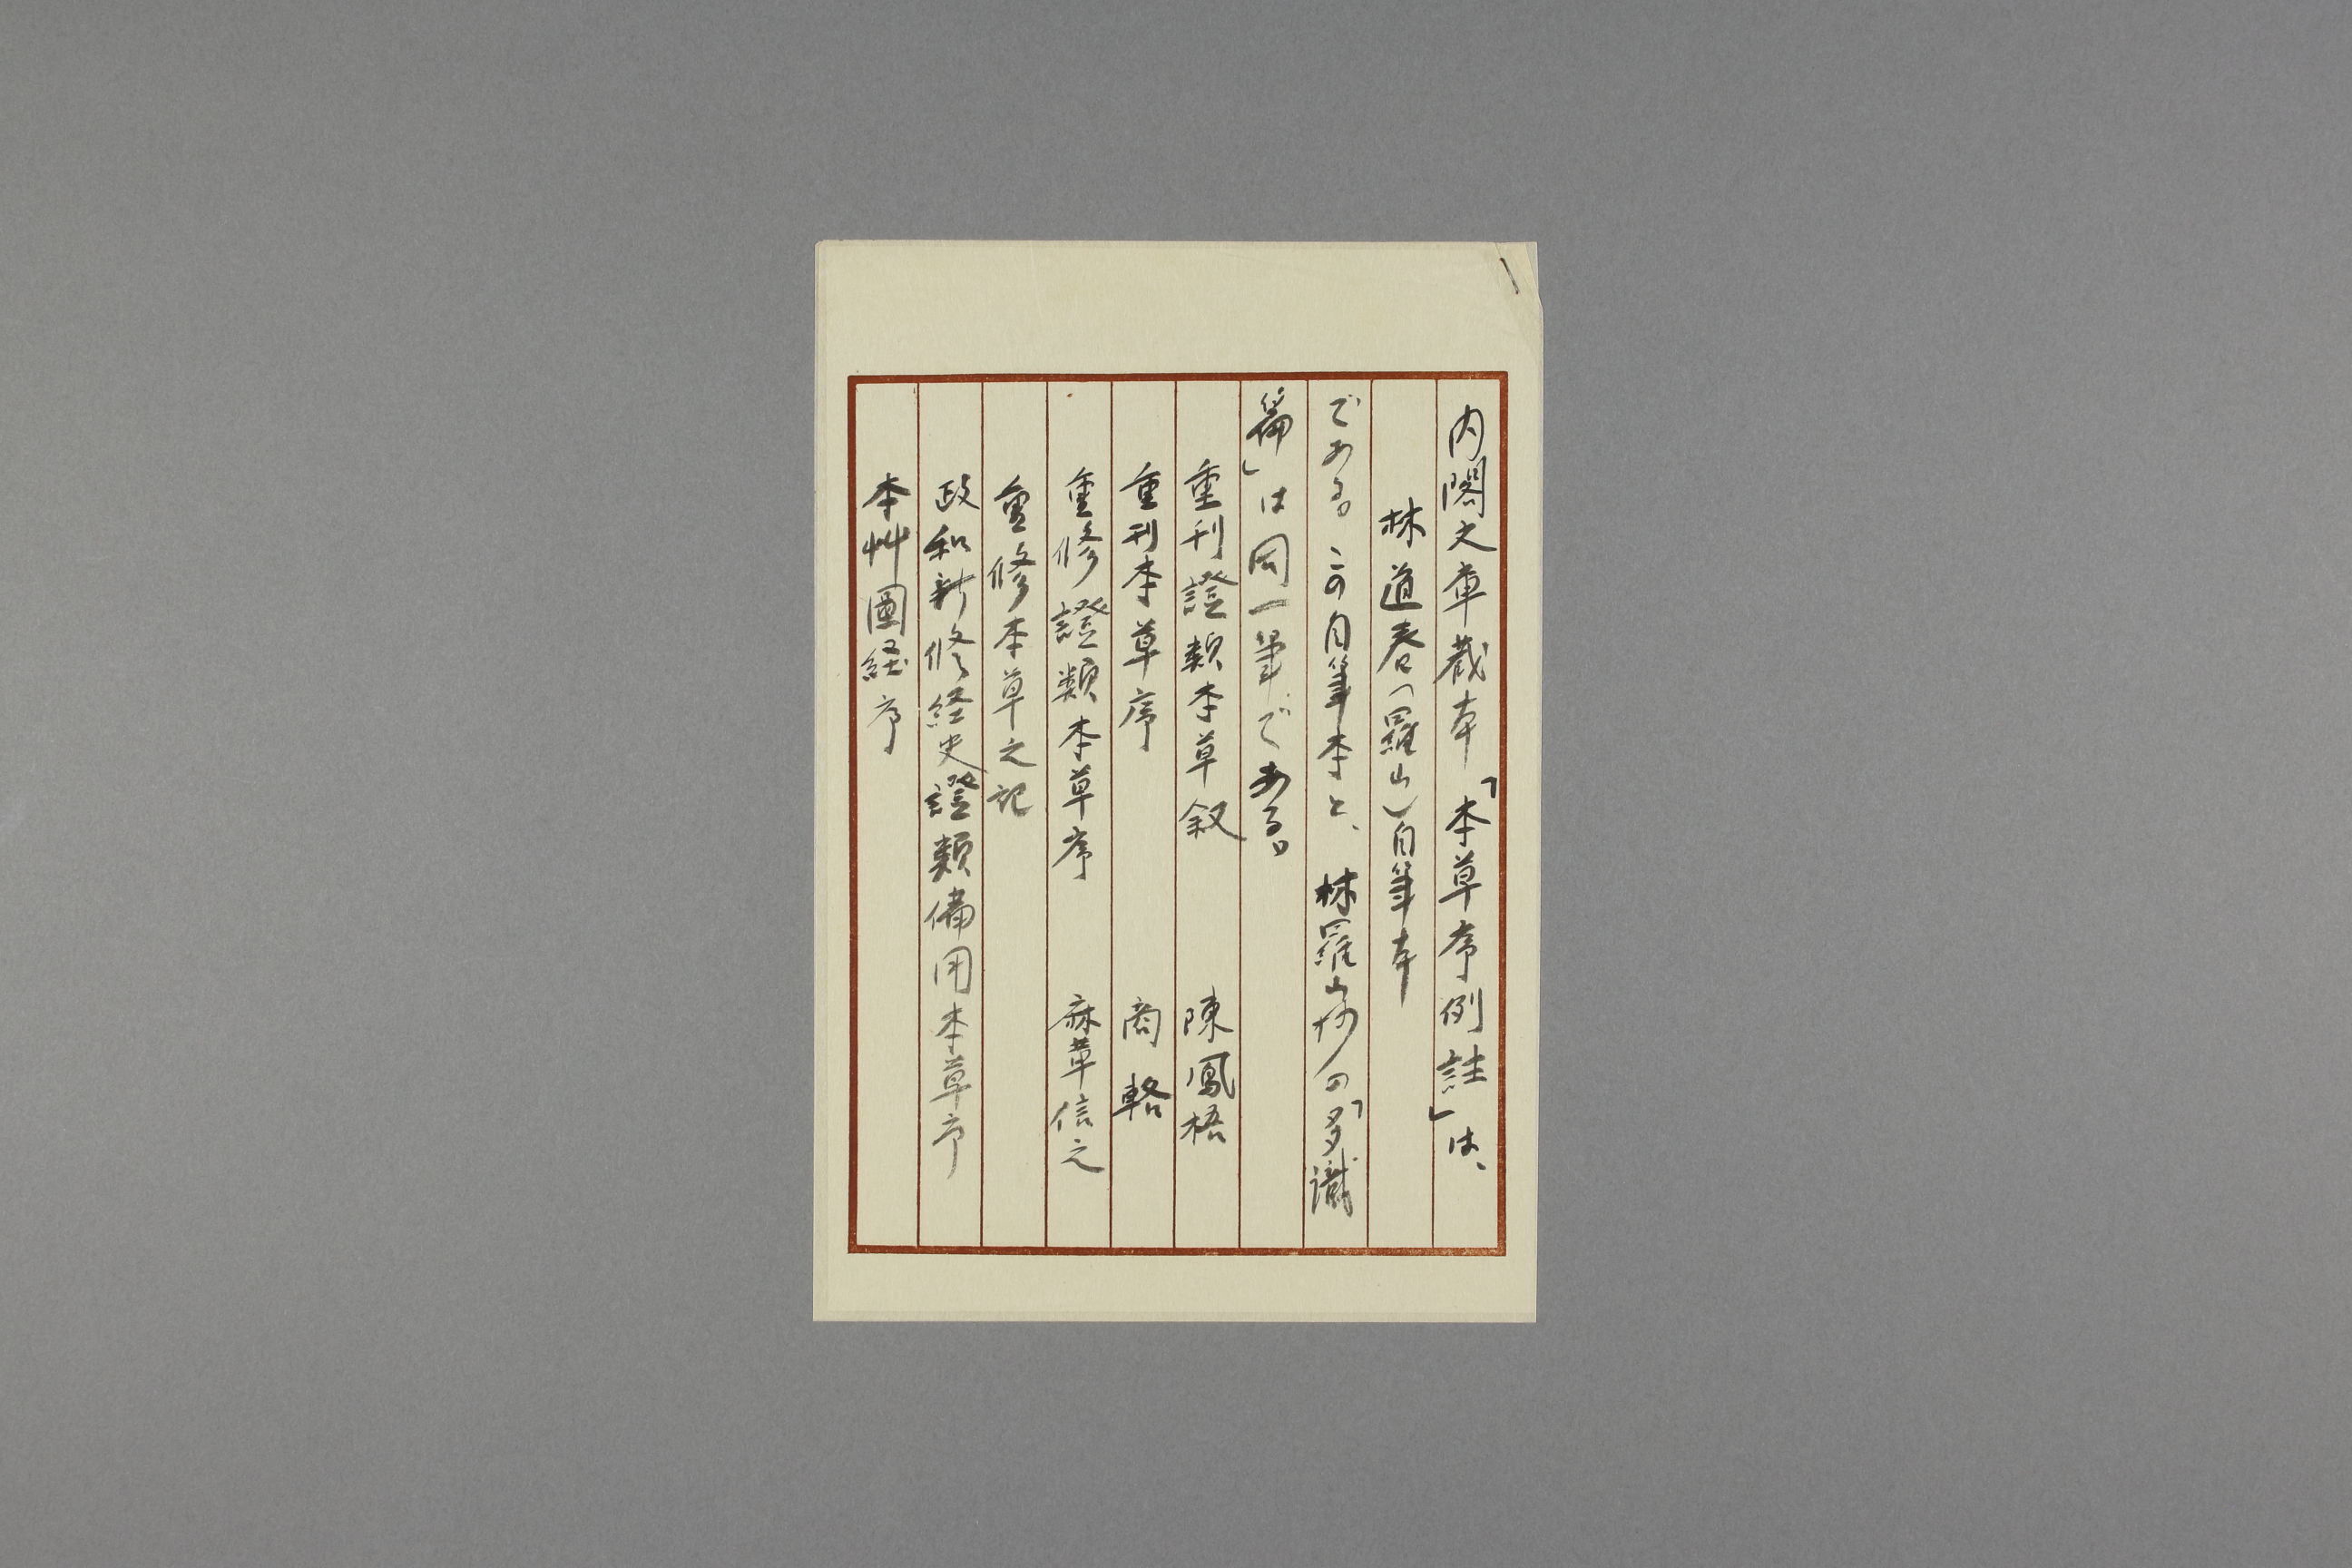 内閣文庫蔵本「本草序例註」は、
林道春(羅山)自筆本
である。この自筆本と、林羅山抄の「多識
篇」は同一筆である。
重刊證類本草叙 陳鳳梧
重刊本草序 商輅
重修證類本草序 麻革信之
重修本草之記
政和新修経史證類備用本草序
本艸圖経序